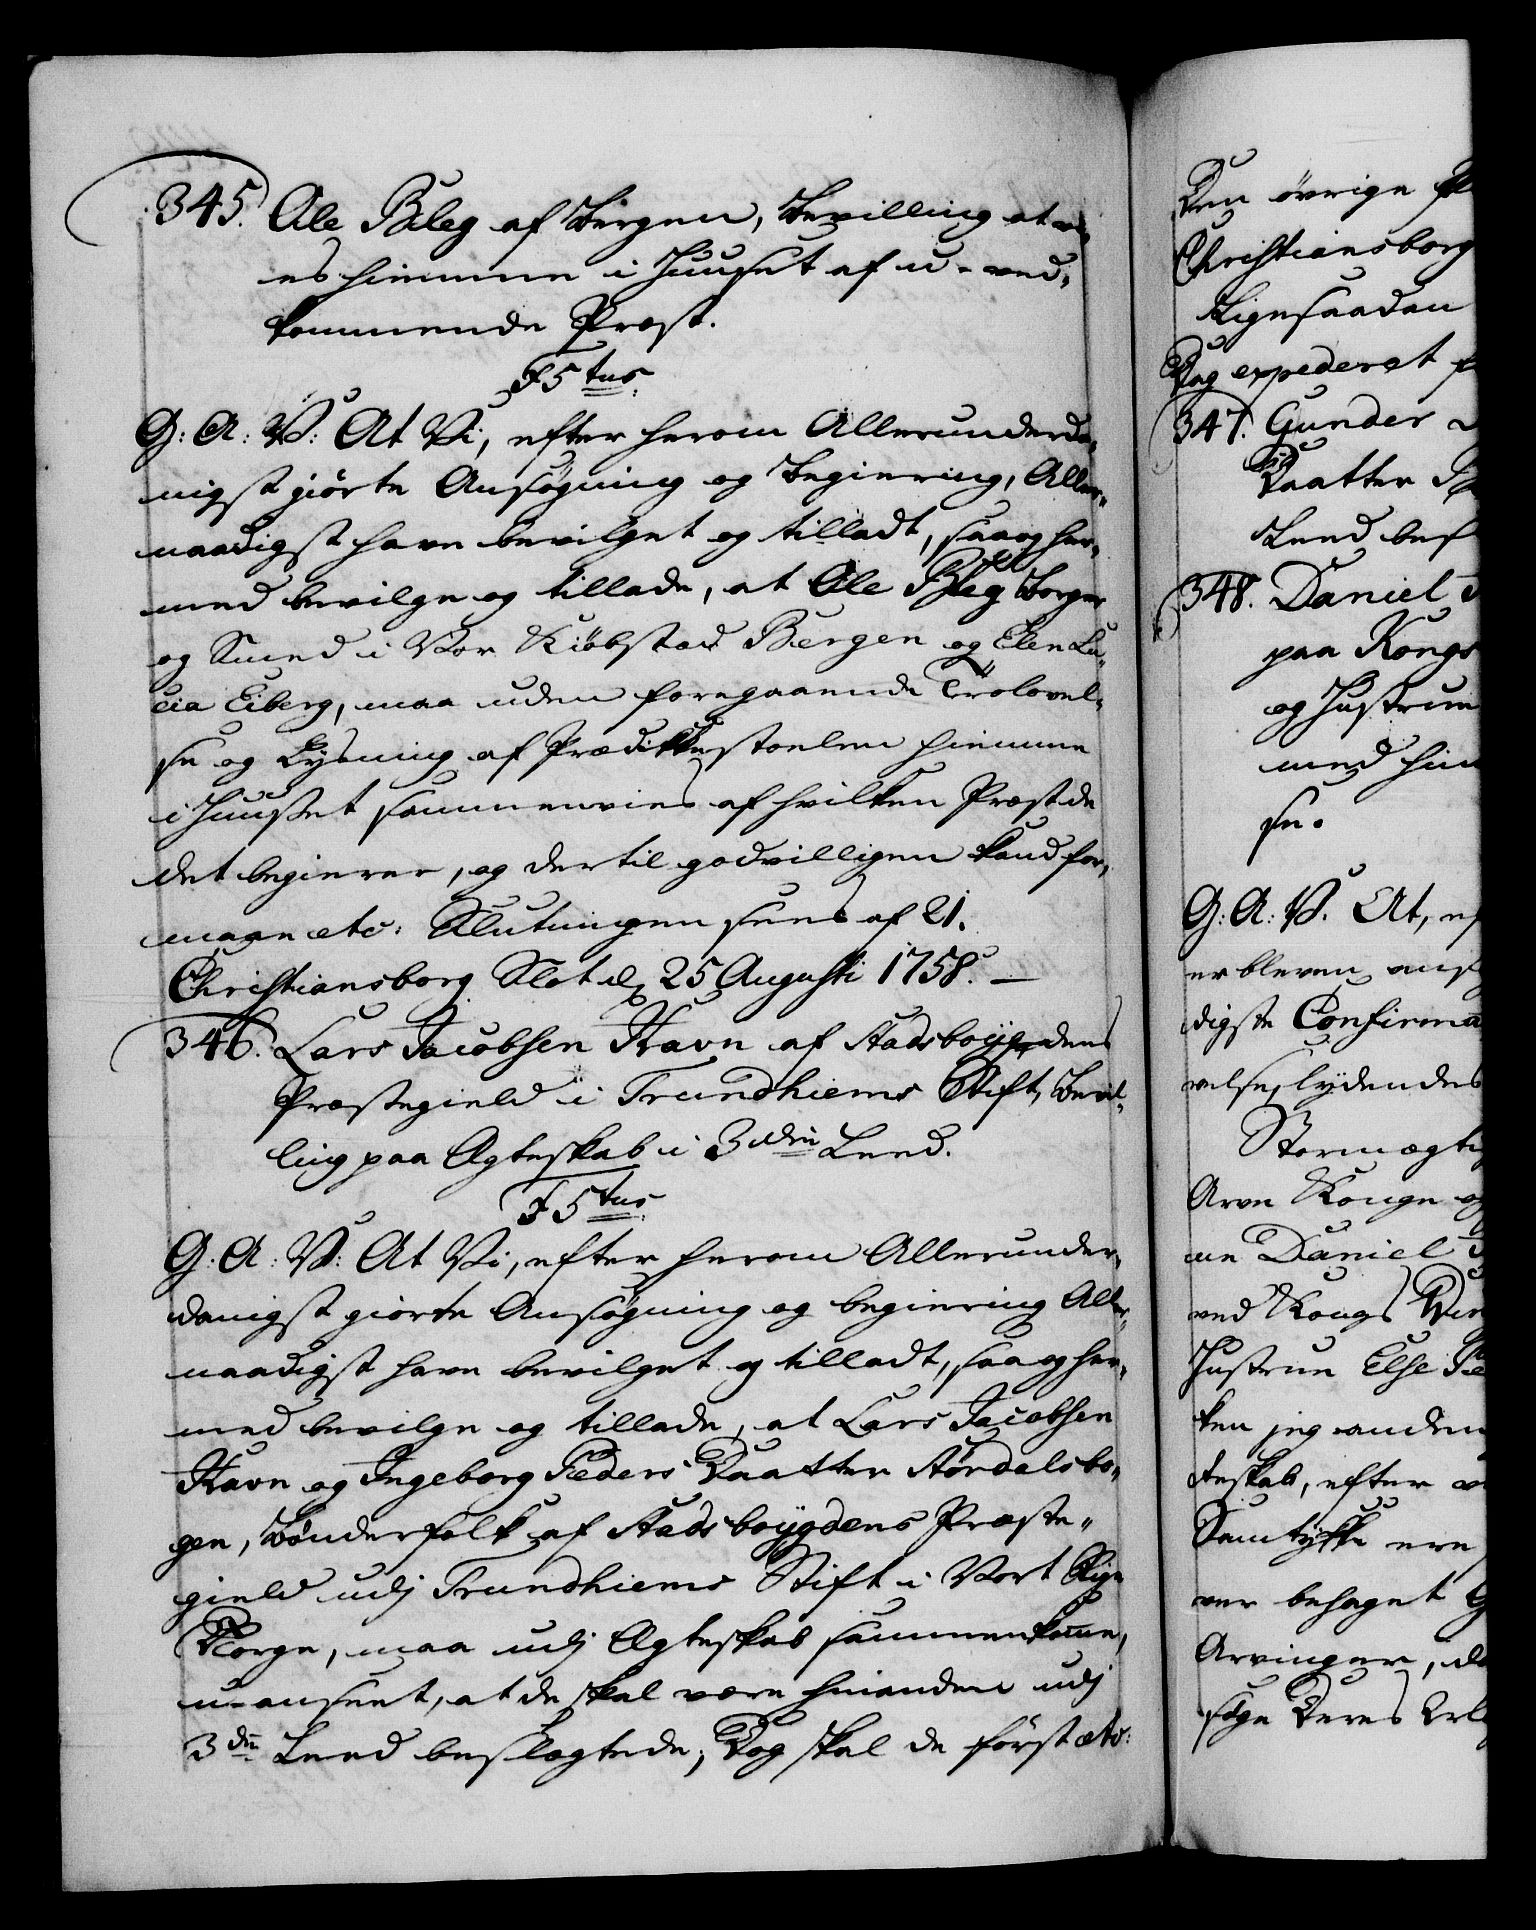 345. Ole Bileg af Bergen, Bevilling at vi¬
es hiemme i Huuset af u-ved¬
kommende Præst.
F5tus
G: A: V: At Vi, efter herom Allerunderda¬
nigst giorte Ansøgning og Begiering, Aller¬
naadigst have bevilget og tilladt, saa og her¬
med bevilge og tillade, at Ole Bileg Borger
og Smed i Vor Kiøbstad Bergen og Elen Lu¬
cia Eiberg, maa uden foregaaende Trolovel¬
se og Lysning af Prædikkestoelen hiemme
i Huuset sammenvies af hvilken Præst de
det begierer, og dertil godvilligen kand for¬
maae etc: Slutningen sees af 21.
Christiansborg Slot d. 25 Augusti 1758. —
346. Lars Jacobsen Havn af Stadsboygdens
Præstegield i Trundhiems Stift, Bevil¬
ling paa Ægteskab i 3die Leed.
F5tus
G: A: V: At Vi, efter herom Allerunder¬
danigst giorte Ansøgning og begiering Aller¬
naadigst have bevilget og tilladt, saa og her¬
med bevilge og tillade, at Lars Jacobsen
Havn og Ingeborg Peders Daatter Størdalsbo¬
gen, Bønderfolk af Stadsboygdens Præste¬
gield udj Trundhiems Stift i Vort Rige
Norge, maa udj Ægteskab sammenkomme,
u-anseet, at de skal være hinanden udj
3die Leed beslægtede; Dog skal de først etc:
Den øvrige
Christiansborg
Ligesaadan
Dag expederet
347. Gunder
Daatter
Leed bes
348. Daniel
paa Kongs
og Hustrue
med hin
se.
G: A: V: At, ef
er bleven ans
digste Confirma
velse, lydendes
Stormægtig
Arve Konge og
ne Daniel
ved Kongs
Hustrue Else Pe
ken jeg anden
teskab, efter
Samtykke ere
ver behaget
Arvinger,
søge Deres